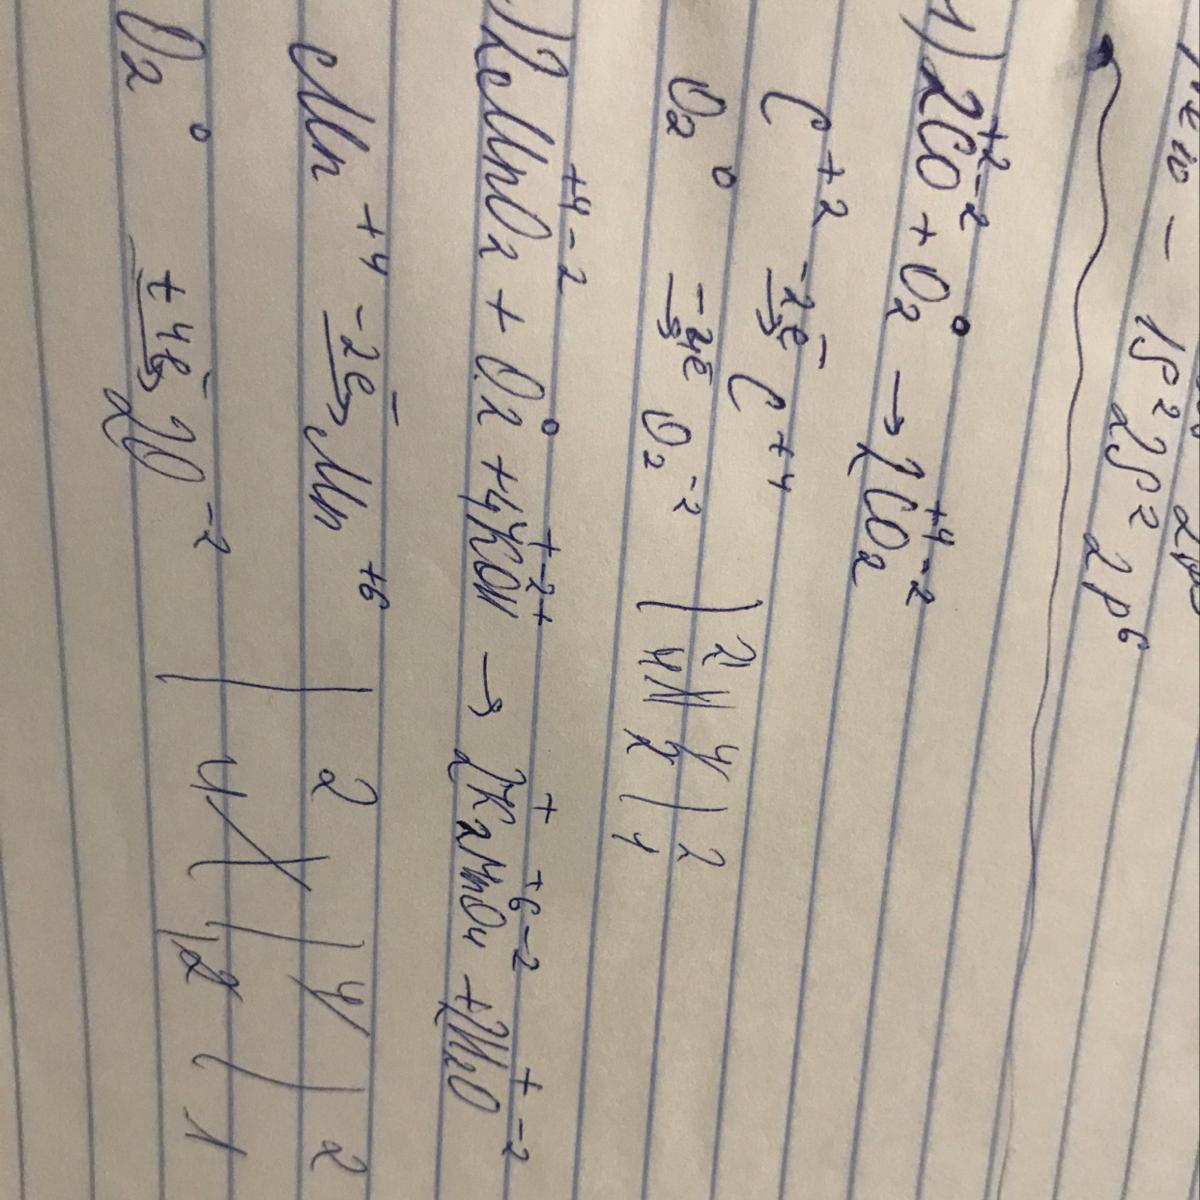 1s² 2s² 2p⁶
1) 2C⁺²O⁻² + O₂⁰ → 2C⁺⁴O₂⁻²
C⁺² -2e̅→ C⁺⁴ | 2 | 4 | 2
O₂⁰ -4e̅→ O₂⁻² | 4 | 2 | 4
) 2Mn⁺⁴O₂⁻² + O₂⁰ + 4K⁺O⁻²H⁺ → 2K₂⁺Mn⁺⁶O₄⁻² + 2H₂⁺O⁻²
Mn⁺⁴ -2e̅→ Mn⁺⁶ | 2 | 4 | 2
O₂⁰ +4e̅→ 2O⁻² | 4 | 2 | 1